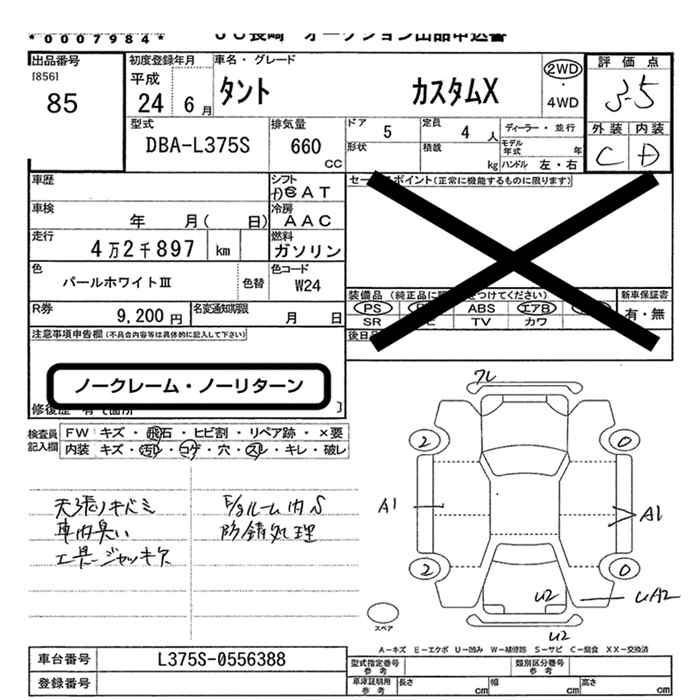 *0007984*
JU長崎 オークション出品申込書
出品番号
[856]
85
初度登録年月
平成
24 6月
車名・グレード
タント カスタムX
2WD
・
4WD
評価点
3.5
外装 内装
C D
型式
DBA-L375S
排気量
660
CC
ドア
5
定員
4人
ディーラー・並行
形状
積載
kg
モデル年式 年
ハンドル 左・右
車歴
シフト
CAT
セールスポイント(正常に機能するものに限ります)
車検
年 月( 日)
冷房
AAC
走行
4万2千897 km
燃料
ガソリン
色
パールホワイトⅢ
色替
色コード
W24
装備品
PS ABS エアB
SR TV カワ
新車保証書
有・無
R券
9,200円
名変通知期限
月 日
注意事項申告欄(不具合内容等は具体的に記入して下さい)
ノークレーム・ノーリターン
検査員
記入欄
FW キズ・飛石・ヒビ割・リペア跡・×要
内装 キズ・汚れ・コゲ・穴・スレ・キレ・破レ
天張ノキバミ
車内臭い
工具ジャッキ欠
ルーム内S
防錆処理
フレ
2 0
A1 A1
2 0
U2 UA2
U2
スペア
A-キズ E-エクボ U-凹み W-補修跡 S-サビ C-腐食 XX-交換済
車台番号
L375S-0556388
登録番号
型式指定番号
参考
類別区分番号
参考
車庫証明用
参考
長さ cm
幅 cm
高さ cm